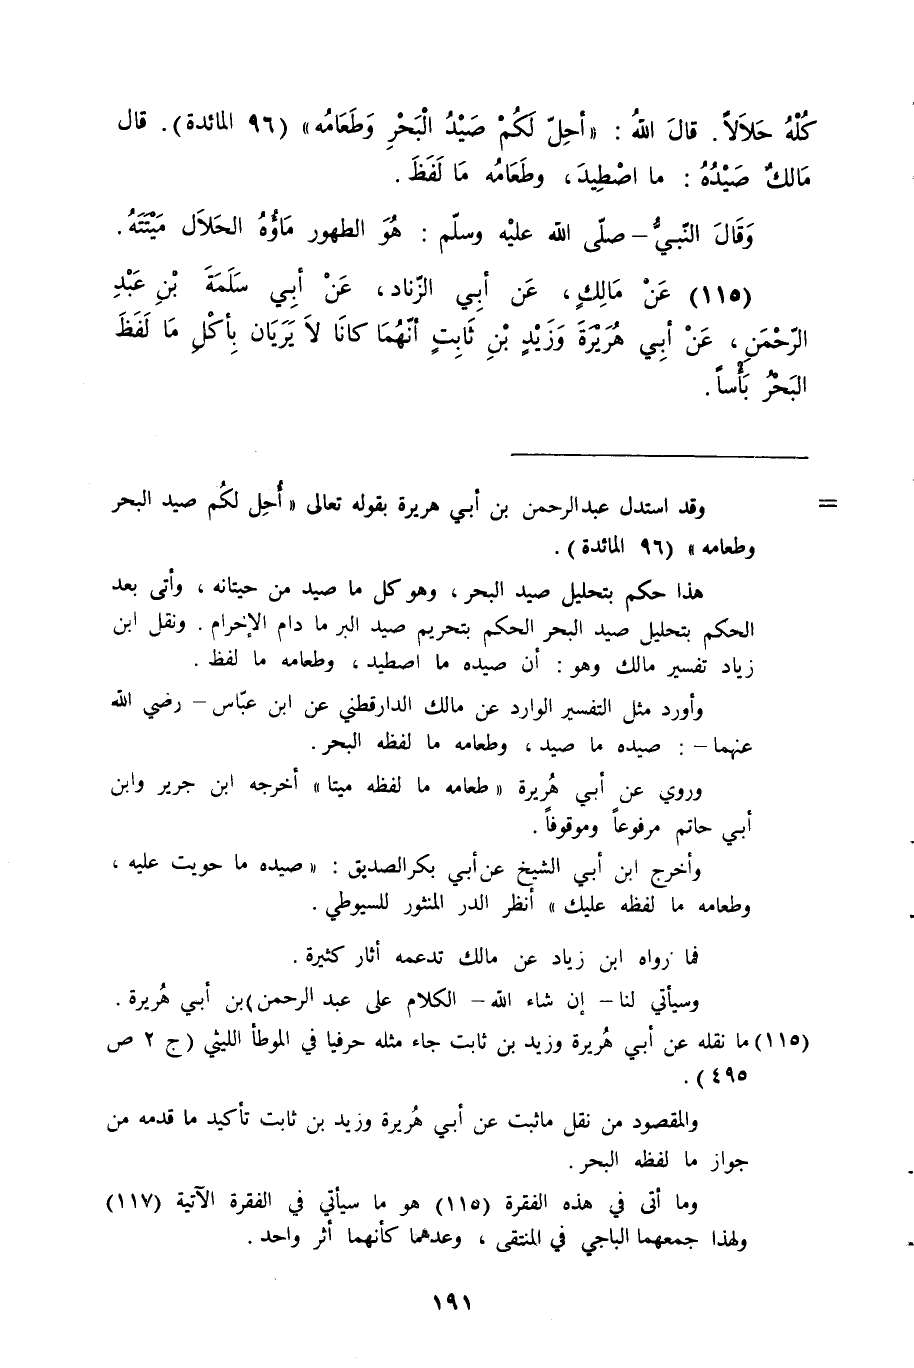 كُلُّهُ حَلاَلاً. قالَ اللهُ : «أحِلّ لَكُمْ صَيْدُ الْبَحْرِ وَطَعَامُه» (٩٦ المائدة). قال
مَالكٌ صَيْدُهُ : ما اصْطِيدَ، وطَعَامُه مَا لَفَظَ.
وَقَالَ النّبيُّ – صلّى الله عليْه وسلّم : هُوَ الطهور مَاؤُهُ الحَلاَل مَيْتَتَهُ.
(١١٥) عَنْ مَالِكٍ، عَن أبِي الزّناد، عَنْ أبِي سَلَمَةَ بْنِ عَبْدِ
الرّحْمَنِ، عَنْ أبِي هُرَيْرَةَ وَزَيْدٍ بْنِ ثَابِتٍ أنّهُمَا كانَا لاَ يَرَيَان بِأكْلِ مَا لَفَظَ
البَحْرُ بَأْساً.
= وقد استدل عبدالرحمن بن أبي هريرة بقوله تعالى «أُحِل لكُم صيد البحر
وطعامه» (٩٦ المائدة).
هذا حكم بتحليل صيد البحر، وهو كل ما صيد من حيتانه، وأتى بعد
الحكم بتحليل صيد البحر الحكم بتحريم صيد البر ما دام الإحرام. ونقل ابن
زياد تفسير مالك وهو : أن صيده ما اصطيد، وطعامه ما لفظ.
وأورد مثل التفسير الوارد عن مالك الدارقطني عن ابن عبّاس – رضي الله
عنهما – : صيده ما صيد، وطعامه ما لفظه البحر.
وروي عن أبي هُريرة «طعامه ما لفظه ميتا» أخرجه ابن جرير وابن
أبي حاتم مرفوعاً وموقوفاً.
وأخرج ابن أبي الشيخ عن أبي بكر الصديق : «صيده ما حويت عليه،
وطعامه ما لفظه عليك» أنظر الدر المنثور للسيوطي.
فما رواه ابن زياد عن مالك تدعمه أثار كثيرة.
وسيأتي لنا – إن شاء الله – الكلام على عبد الرحمن)بن أبي هُريرة.
(١١٥) ما نقله عن أبي هُريرة وزيد بن ثابت جاء مثله حرفيا في الموطأ الليثي (ج ٢ ص
٤٩٥).
والمقصود من نقل ماثبت عن أبي هُريرة وزيد بن ثابت تأكيد ما قدمه من
جواز ما لفظه البحر.
وما أتى في هذه الفقرة (١١٥) هو ما سيأتي في الفقرة الآتية (١١٧)
ولهذا جمعهما الباجي في المنتقى، وعدهما كأنهما أثر واحد.
١٩١